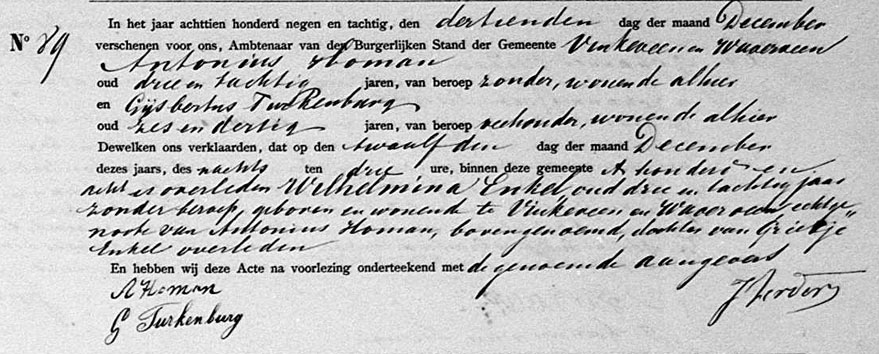 In het jaar achttien honderd negen en tachtig, den dertienden dag der maand December
No 89 verschenen voor ons, Ambtenaar van den Burgerlijken Stand der Gemeente Vinkeveen en Waverveen
Antonius Homan
oud drie en tachtig jaren, van beroep zonder, wonende alhier
en Gijsbertus Turkenburg
oud zes en dertig jaren, van beroep veehouder, wonende alhier
Dewelken ons verklaarden, dat op den twaalfden dag der maand December
dezes jaars, des nachts ten drie ure, binnen deze gemeente A honderd en
acht is overleden Wilhelmina Enkel, oud drie en tachtig jaar
zonder beroep, geboren en wonende te Vinkeveen en Waverveen echtge„
noote van Antonius Homan, bovengenoemd, dochter van Grietje
Enkel overleden
En hebben wij deze Acte na voorlezing onderteekend met de genoemde aangevers
A Homan
G Turkenburg